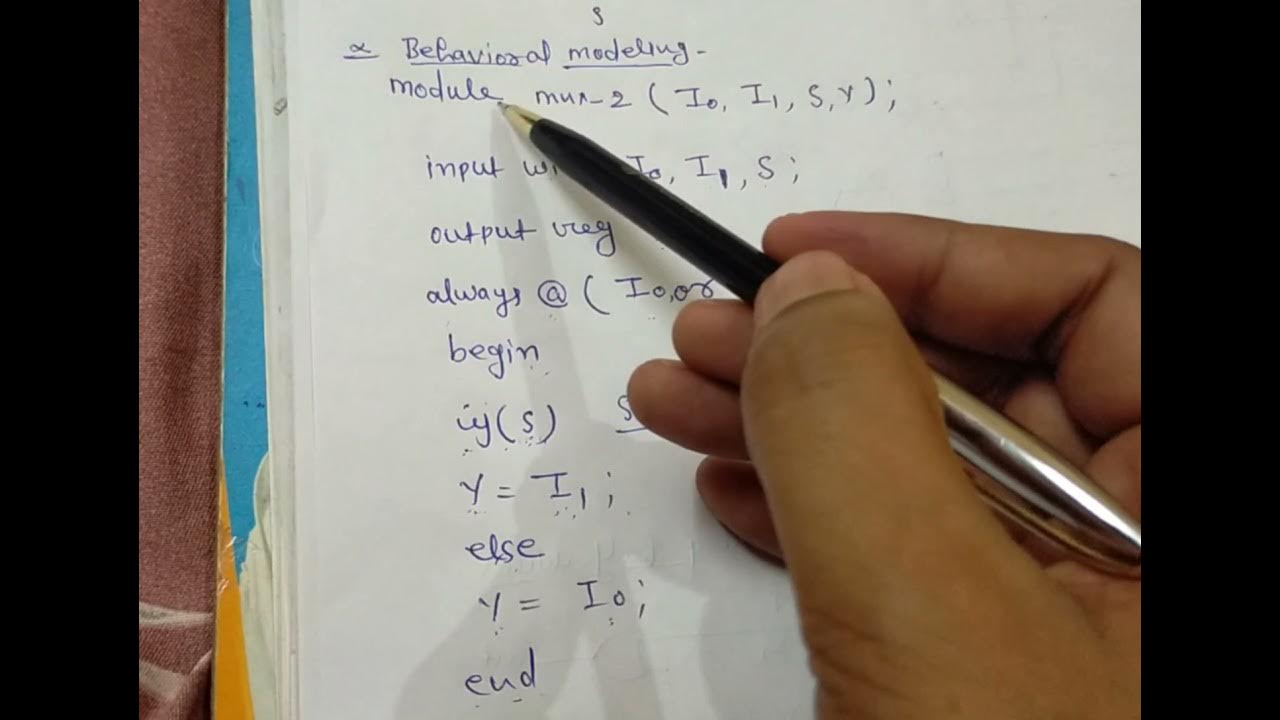 S
Behavioral modeling-
module mux-2 (I0, I1, S, Y);
input I0, I1, S;
output reg
always @ (I0, or
begin
if(S) S
Y = I1;
else
Y = I0;
end